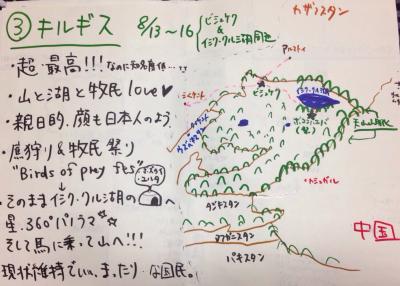 ③ キルギス 8/13〜16 ビシュケク & イシク・クル湖周遊
・超・最高!!! なのに知名度低…
・山と湖と牧民 love♥
・親日的、顔も日本人のよう
・鷹狩り&牧民祭り
"Birds of prey fes"
↓
・そのままイシク・クル湖の
星、360°パノラマ☆
そして馬に乗って山へ!!!
現状維持でいい、まったりな国民。
カザフスタン
アルマトイ
ビシュケク
イシク・クル湖
タシケント
ウズベキスタン
天山山脈
カシュガル
タジキスタン
アフガニスタン
パキスタン
中国